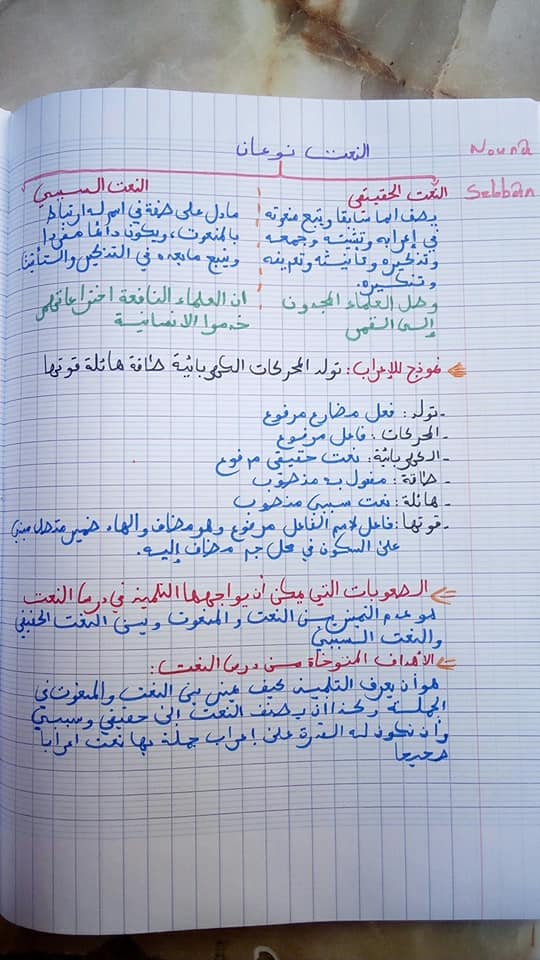 النعت نوعان
Nouna
Sebban
النعت الحقيقي
يصف اسما سابقا ويتبع منعوته
في إعرابه وتثنيته وجمعه
وتذكيره وتأنيثه وتعريفه
وتنكيره.
وصل العلماء المجدون
إلى القمر
النعت السببي
مادل على صفة في اسم له ارتباط
بالمنعوت، ويكون دائما مفردا
ويتبع مابعده في التذكير والتأنيث
ان العلماء النافعة اختراعاتهم
خدموا الانسانية
نموذج للإعراب: تولد المحركات الكهربائية طاقة هائلة قوتها
-تولد: فعل مضارع مرفوع
-المحركات: فاعل مرفوع
-الكهربائية: نعت حقيقي مرفوع
-طاقة: مفعول به منصوب
-هائلة: نعت سببي منصوب
-قوتها: فاعل لاسم الفاعل مرفوع وهو مضاف والهاء ضمير متصل مبني
على السكون في محل جر مضاف إليه.
الصعوبات التي يمكن أن يواجهها التلميذ في درس النعت
هو عدم التمييز بين النعت والمنعوت وبين النعت الحقيقي
والنعت السببي
الأهداف المتوخاة من درس النعت:
هو أن يعرف التلميذ كيف يميز بين النعت والمنعوت في
الجملة وكذا أن يصنف النعت إلى حقيقي وسببي
وأن تكون له القدرة على إعراب جملة بها نعت اعرابا
صحيحا